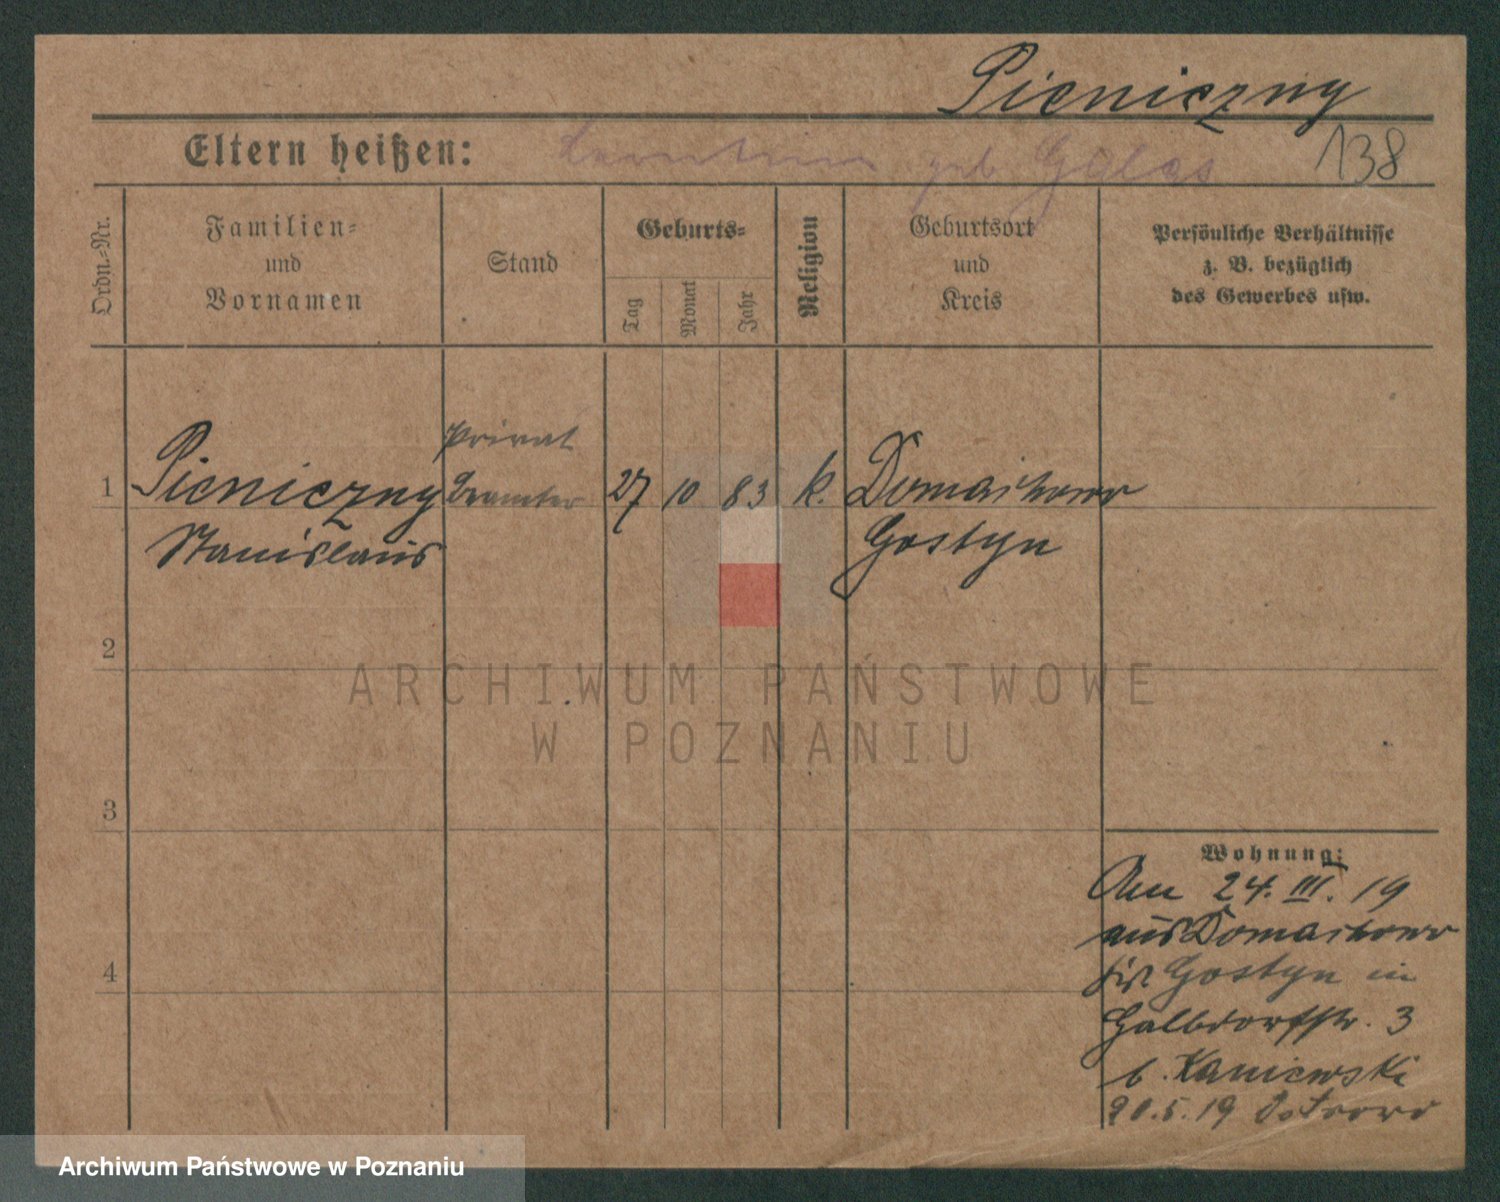 Pieniczny
Eltern heißen: geb. Galas
138
Ordn.-Nr.
Familien-
und
Vornamen
Stand
Geburts-
Tag
Monat
Jahr
Religion
Geburtsort
und
Kreis
Persönliche Verhältnisse
z. B. bezüglich
des Gewerbes usw.
Privat
1 Pieniczny beamter 27 10 83 k. Domachowo
Stanislaus Gostyn
2
ARCHIWUM PAŃSTWOWE
W POZNANIU
3
Wohnung:
Am 24. III. 19
aus Domachowo
Gostyn in
Halbdorfstr. 3
b. Kaniewski
20.5.19 Ostrowo
4
Archiwum Państwowe w Poznaniu